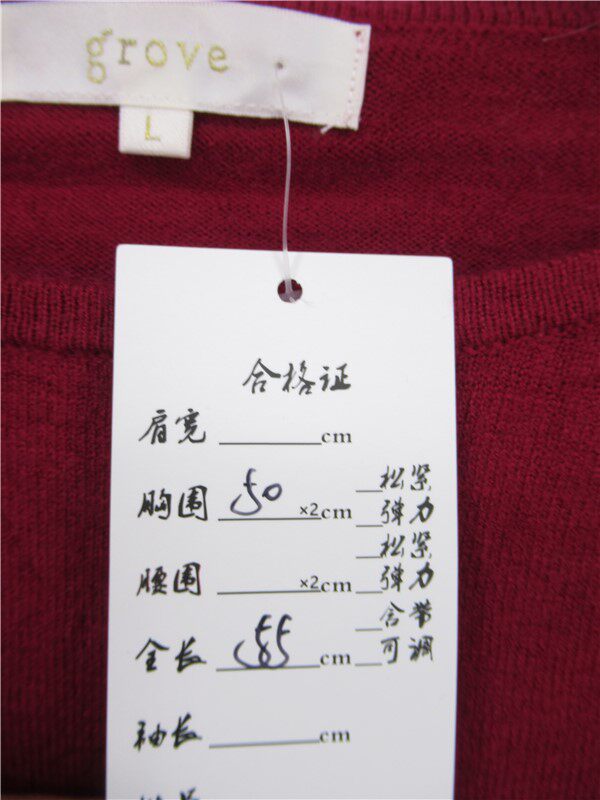 grove
L
合格证
肩宽 cm
胸围 50 ×2cm 松紧
弹力
腰围 ×2cm 松紧
弹力
全长 55 cm 含带
可调
袖长 cm